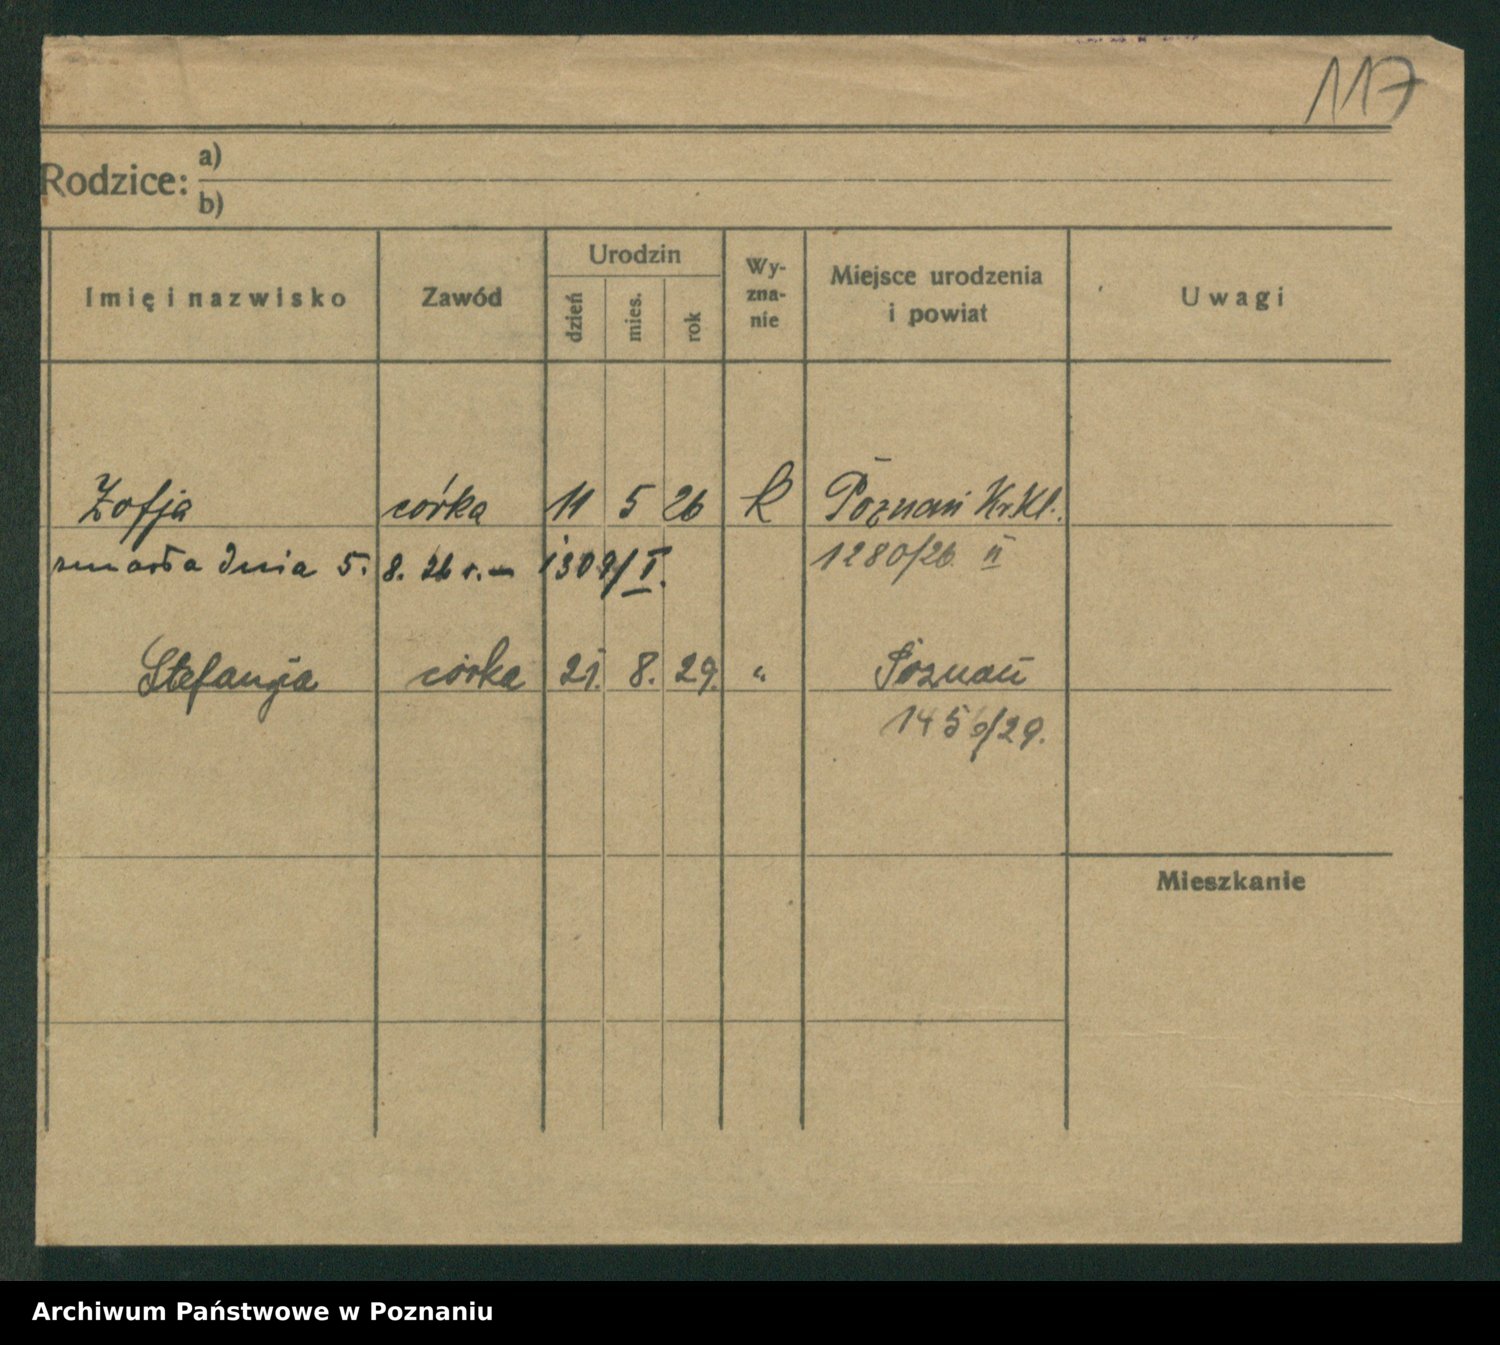 117
Rodzice: a)
b)
Imię i nazwisko Zawód Urodzin dzień mies. rok Wy-zna-nie Miejsce urodzenia i powiat Uwagi
Zofja córka 11 5 26 k Poznań Kr. Kl.
zmarła dnia 5. 8. 26 r. – 1309/I. 1280/26 II
Stefanja córka 21. 8. 29. " Poznań
1456/29.
Mieszkanie
Archiwum Państwowe w Poznaniu